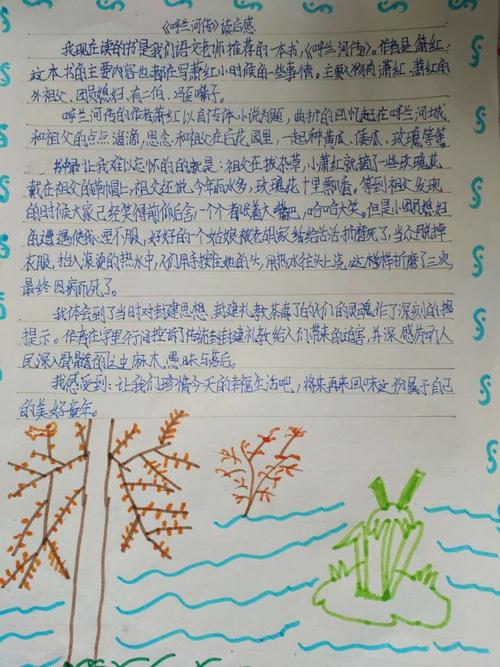 《呼兰河传》读后感
我现在读的书是我们语文老师推荐的一本书,《呼兰河传》。作者是萧红,
这本书的主要内容也都在写萧红小时候的一些事情。主要人物有萧红、萧红的
外祖父、团员媳妇、有二伯、冯歪嘴子。
呼兰河传的作者萧红以自传体小说为题,曲折的回忆起在呼兰河城
和祖父的点点滴滴,思念和祖父在后花园里,一起种黄瓜、倭瓜、玫瑰等等
书中最让我难以忘怀的的就是:祖父在拔杂草,小萧红就摘了一些玫瑰花
戴在祖父的草帽上,祖父还说:今年雨水多,玫瑰花十里飘香,等到祖父发现
的时候大家已经笑得前俯后合,一个个都咧着大嘴巴,哈哈大笑。但是小团员媳妇
的遭遇使我心里不服,好好的一个姑娘被老胡家给活活折磨死了,当众脱掉
衣服,抬入滚烫的热水中,人们用手按住她的头,用热水往头上浇,这样折磨了三次,
最终因病而死了。
我体会到了当时对封建思想、封建礼教荼毒了的人们的灵魂,作了深刻的揭
提示。作者在字里行间控诉了传统封封建礼教给人们带来的迫害,并深感为
民深入骨髓的麻木、愚昧与落后。
我感受到:让我们珍惜今天的幸福生活吧,将来再来回味这份属于自己
的美好童年。